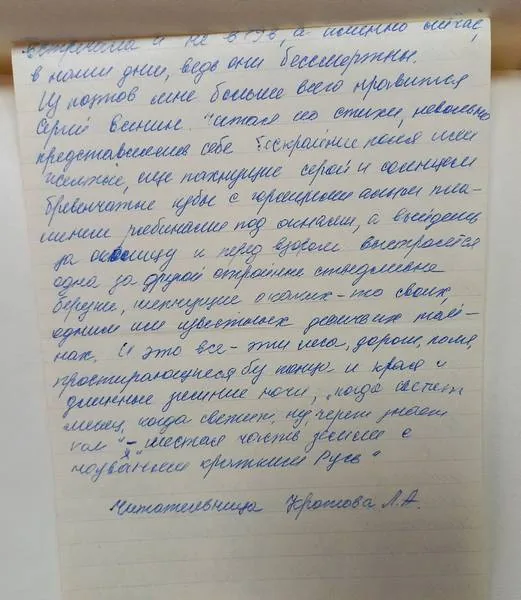 встречена и не в ХІХ, а именно сейчас,
в наши дни, ведь они бессмертны.
Из поэтов мне больше всего нравится
Сергей Есенин. Читая его стихи, невольно
представляешь себе бескрайние поля или
желтые, еще пахнущие серой и солнцем
бревенчатые избы с горящими алым пла-
менем рябинами под окнами, а выйдешь
за околицу и перед взором выстроятся
одна за другой стыдливые
березки, шепчущие о каких-то своих,
одним им известных девичьих тай-
нах. И это все - эти леса, дороги, поля,
простирающиеся без конца и края и
длинные зимние ночи, "когда светит
месяц, когда светит, ну, черт знает
как" - "шестая часть земли с
названьем кратким Русь"
Читательница Кротова Л.А.